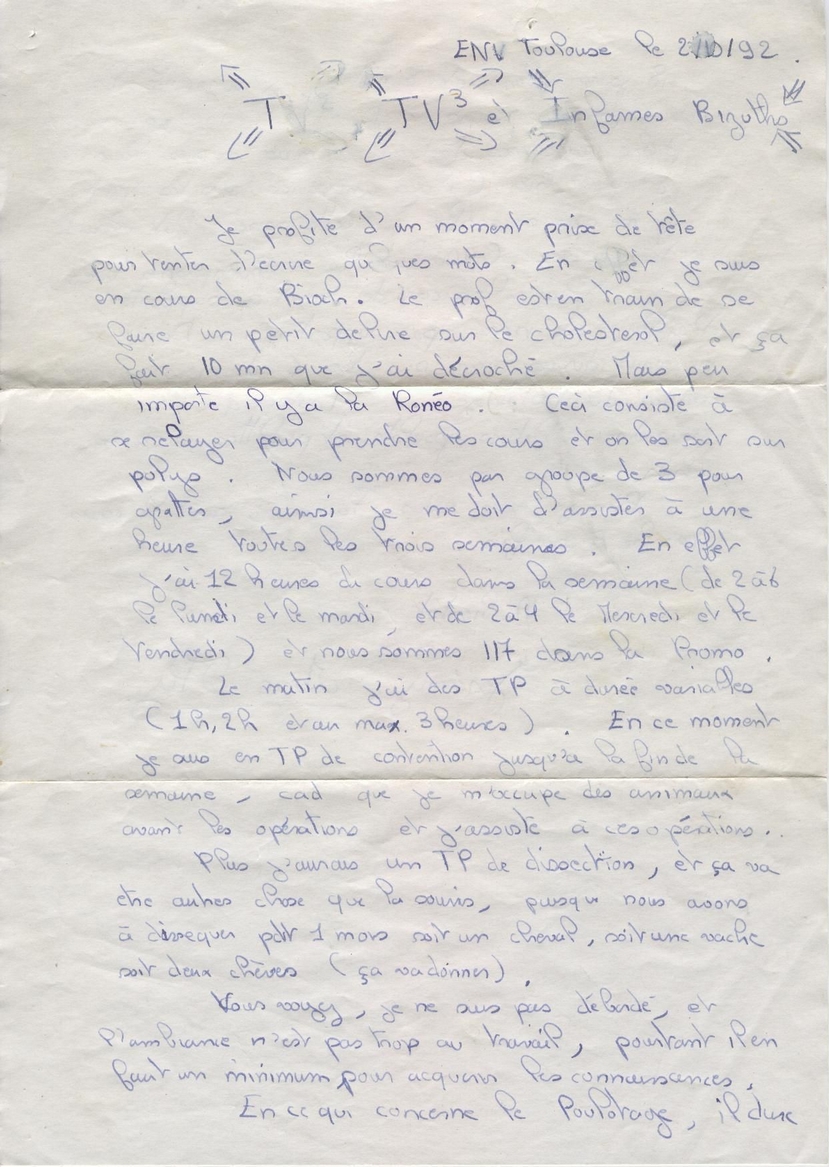 ENV Toulouse le 2/10/92.
T TV³ et Infames Bizuths
Je profite d'un moment prise de tête
pour tenter d'écrire quelques mots. En effet je suis
en cours de Bioch. Le prof est en train de se
faire un petit delire sur le cholesterol, et ça
fait 10 mn que j'ai décroché. Mais peu
importe il y a la Ronéo. Ceci consiste à
se relayer pour prendre les cours et on les sort sur
polys. Nous sommes par groupe de 3 pour
gratter, ainsi je me doit d'assister à une
heure toutes les trois semaines. En effet
j'ai 12 heures de cours dans la semaine (de 2 à 6
le lundi et le mardi, et de 2 à 4 le Mercredi et le
Vendredi) et nous sommes 117 dans la Promo.
Le matin j'ai des TP à durée variables
(1h, 2h et au max. 3 heures). En ce moment
je suis en TP de contention jusqu'à la fin de la
semaine, cad que je m'occupe des animaux
avant les opérations et j'assiste à ces opérations..
Plus j'aurais un TP de dissection, et ça va
etre autres chose que la souris, puisque nous avons
à dissequer pdt 1 mois soit un cheval, soit une vache
soit deux chèvres (ça va donner).
Vous voyez, je ne suis pas débordé, et
l'ambiance n'est pas trop au travail, pourtant il en
faut un minimum pour acquerir les connaissances.
En ce qui concerne le Poulotage, il dure